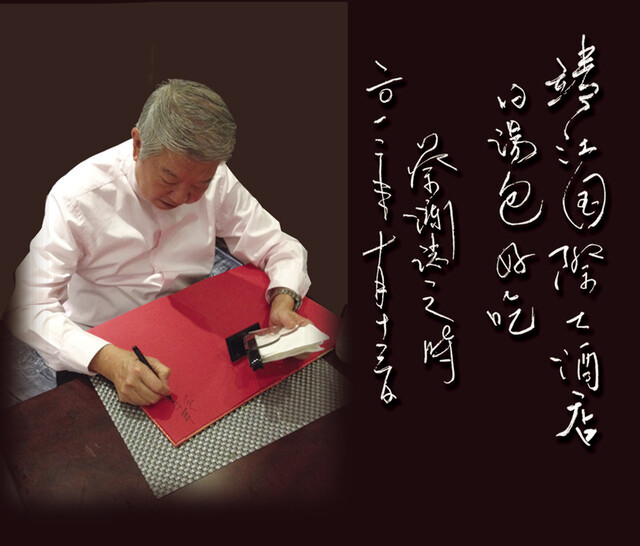 靖江国際大酒店
的湯包好吃
蔡瀾之時
二〇一二年十月十三日